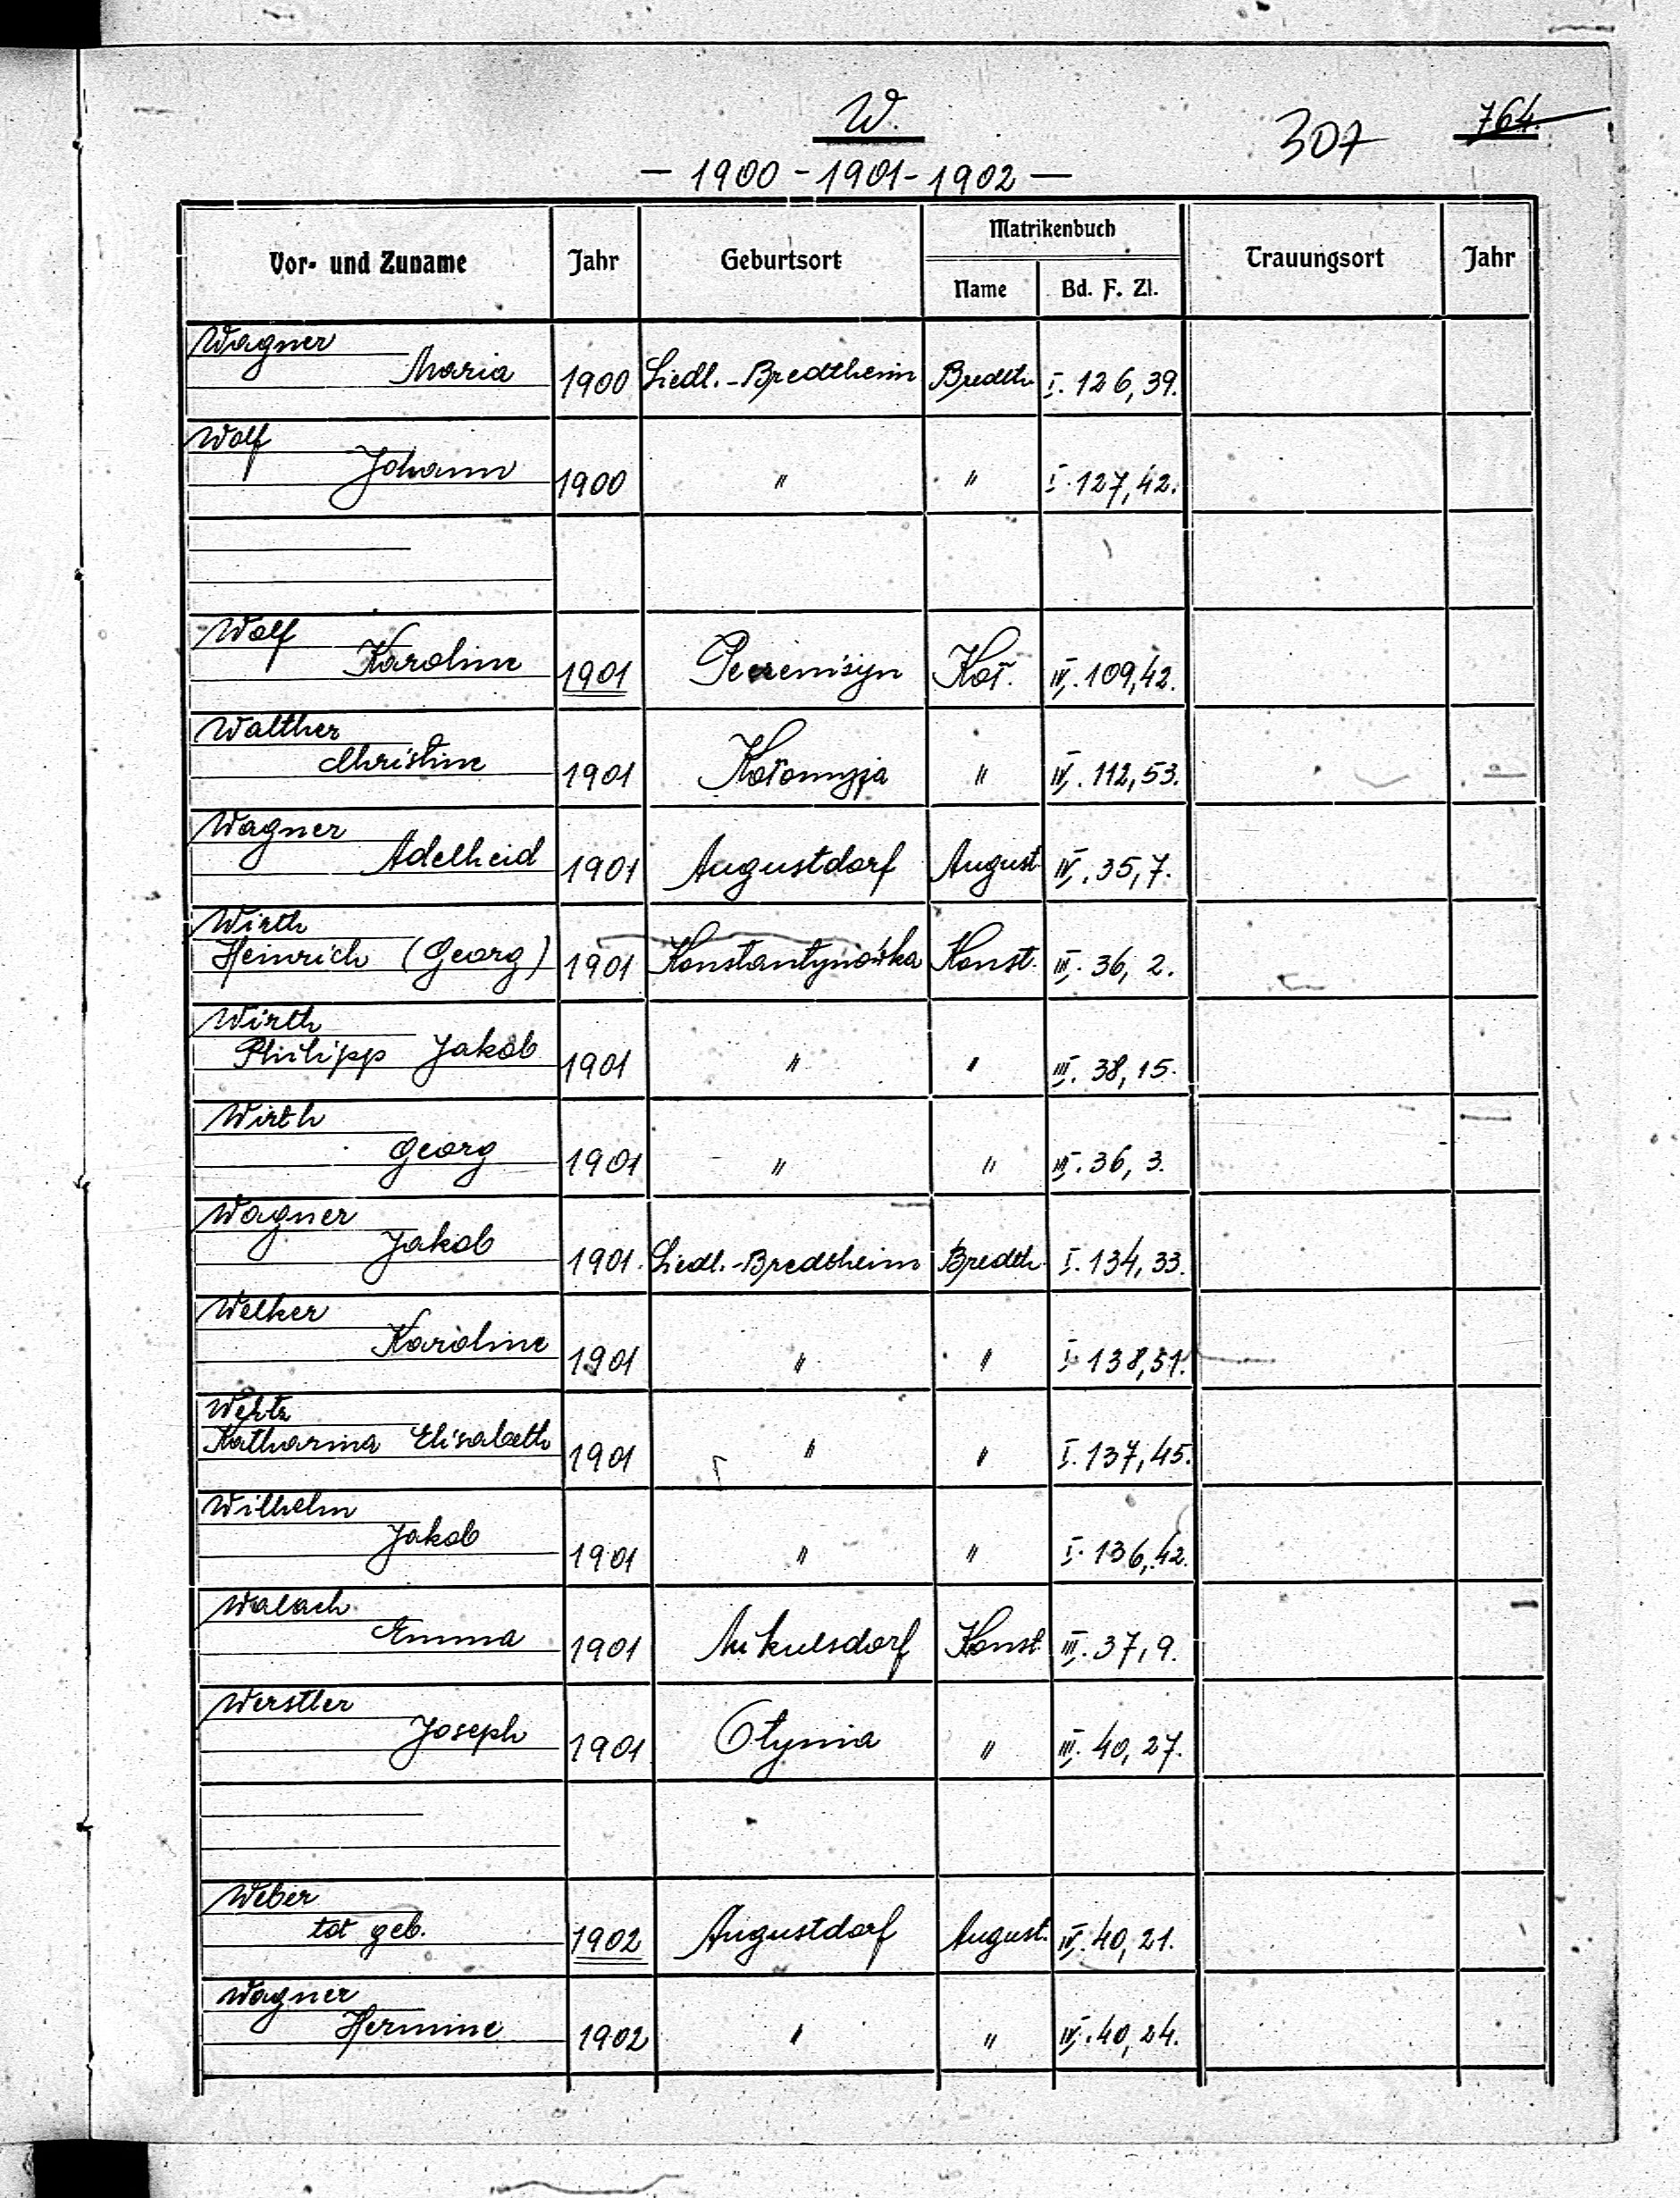 W.
307 764.
— 1900 - 1901 - 1902 —
Vor- und Zuname Jahr Geburtsort Matrikenbuch Trauungsort Jahr
Name Bd. F. Zl.
Wagner
Maria 1900 Siedl.-Bredtheim Bredth. I. 126,39.
Wolf
Johann 1900 " " I. 127,42.
Wolf
Karoline 1901 Koł. IV. 109,42.
Walther
Christine 1901 Kołomyja " IV. 112,53.
Wagner
Adelheid 1901 Augustdorf August. IV. 35,7.
Wirth
Heinrich (Georg) 1901 Konstantynówka Konst. III. 36, 2.
Wirth
Philipp Jakob 1901 " " III. 38,15.
Wirth
Georg 1901 " " III. 36, 3.
Wagner
Jakob 1901 Siedl.-Bredtheim Bredth. I. 134,33.
Welker
Karoline 1901 " " I. 138,51.
Katharina Elisabeth 1901 " " I. 137,45.
Wilhelm
Jakob 1901 " " I. 136,42.
Walach
Emma 1901 Mikulsdorf Konst. III. 37,9.
Werstler
Joseph 1901 Otynia " III. 40,27.
Weber
tot geb. 1902 Augustdorf August. IV. 40,21.
Wagner
Hermine 1902 " " IV. 40,24.